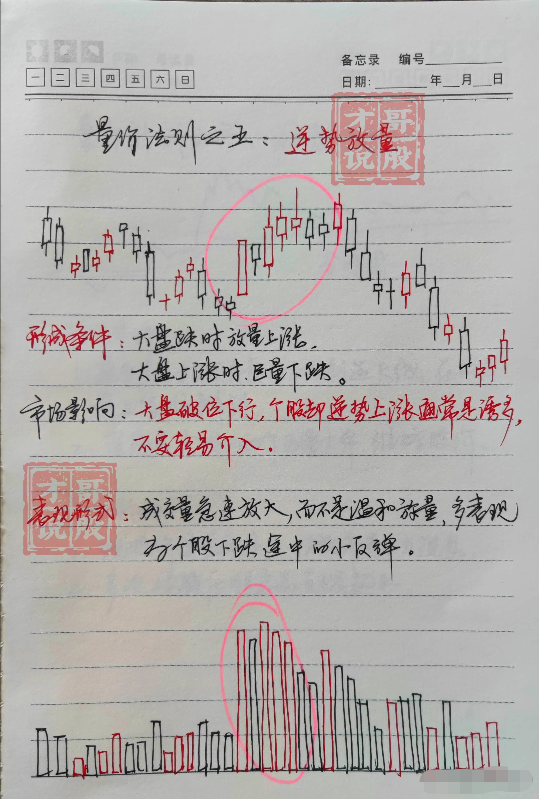 备忘录 编号
一 二 三 四 五 六 日
日期: 年 月 日
量价法则之五：逆势放量
哥股
才说
形成条件：大盘跌时放量上涨，
大盘上涨时，巨量下跌。
市场影响：大盘破位下行，个股却逆势上涨通常是诱多，
不要轻易介入。
哥股
才说
表现形式：成交量急速放大，而不是温和放量，多表现
为个股下跌途中的小反弹。